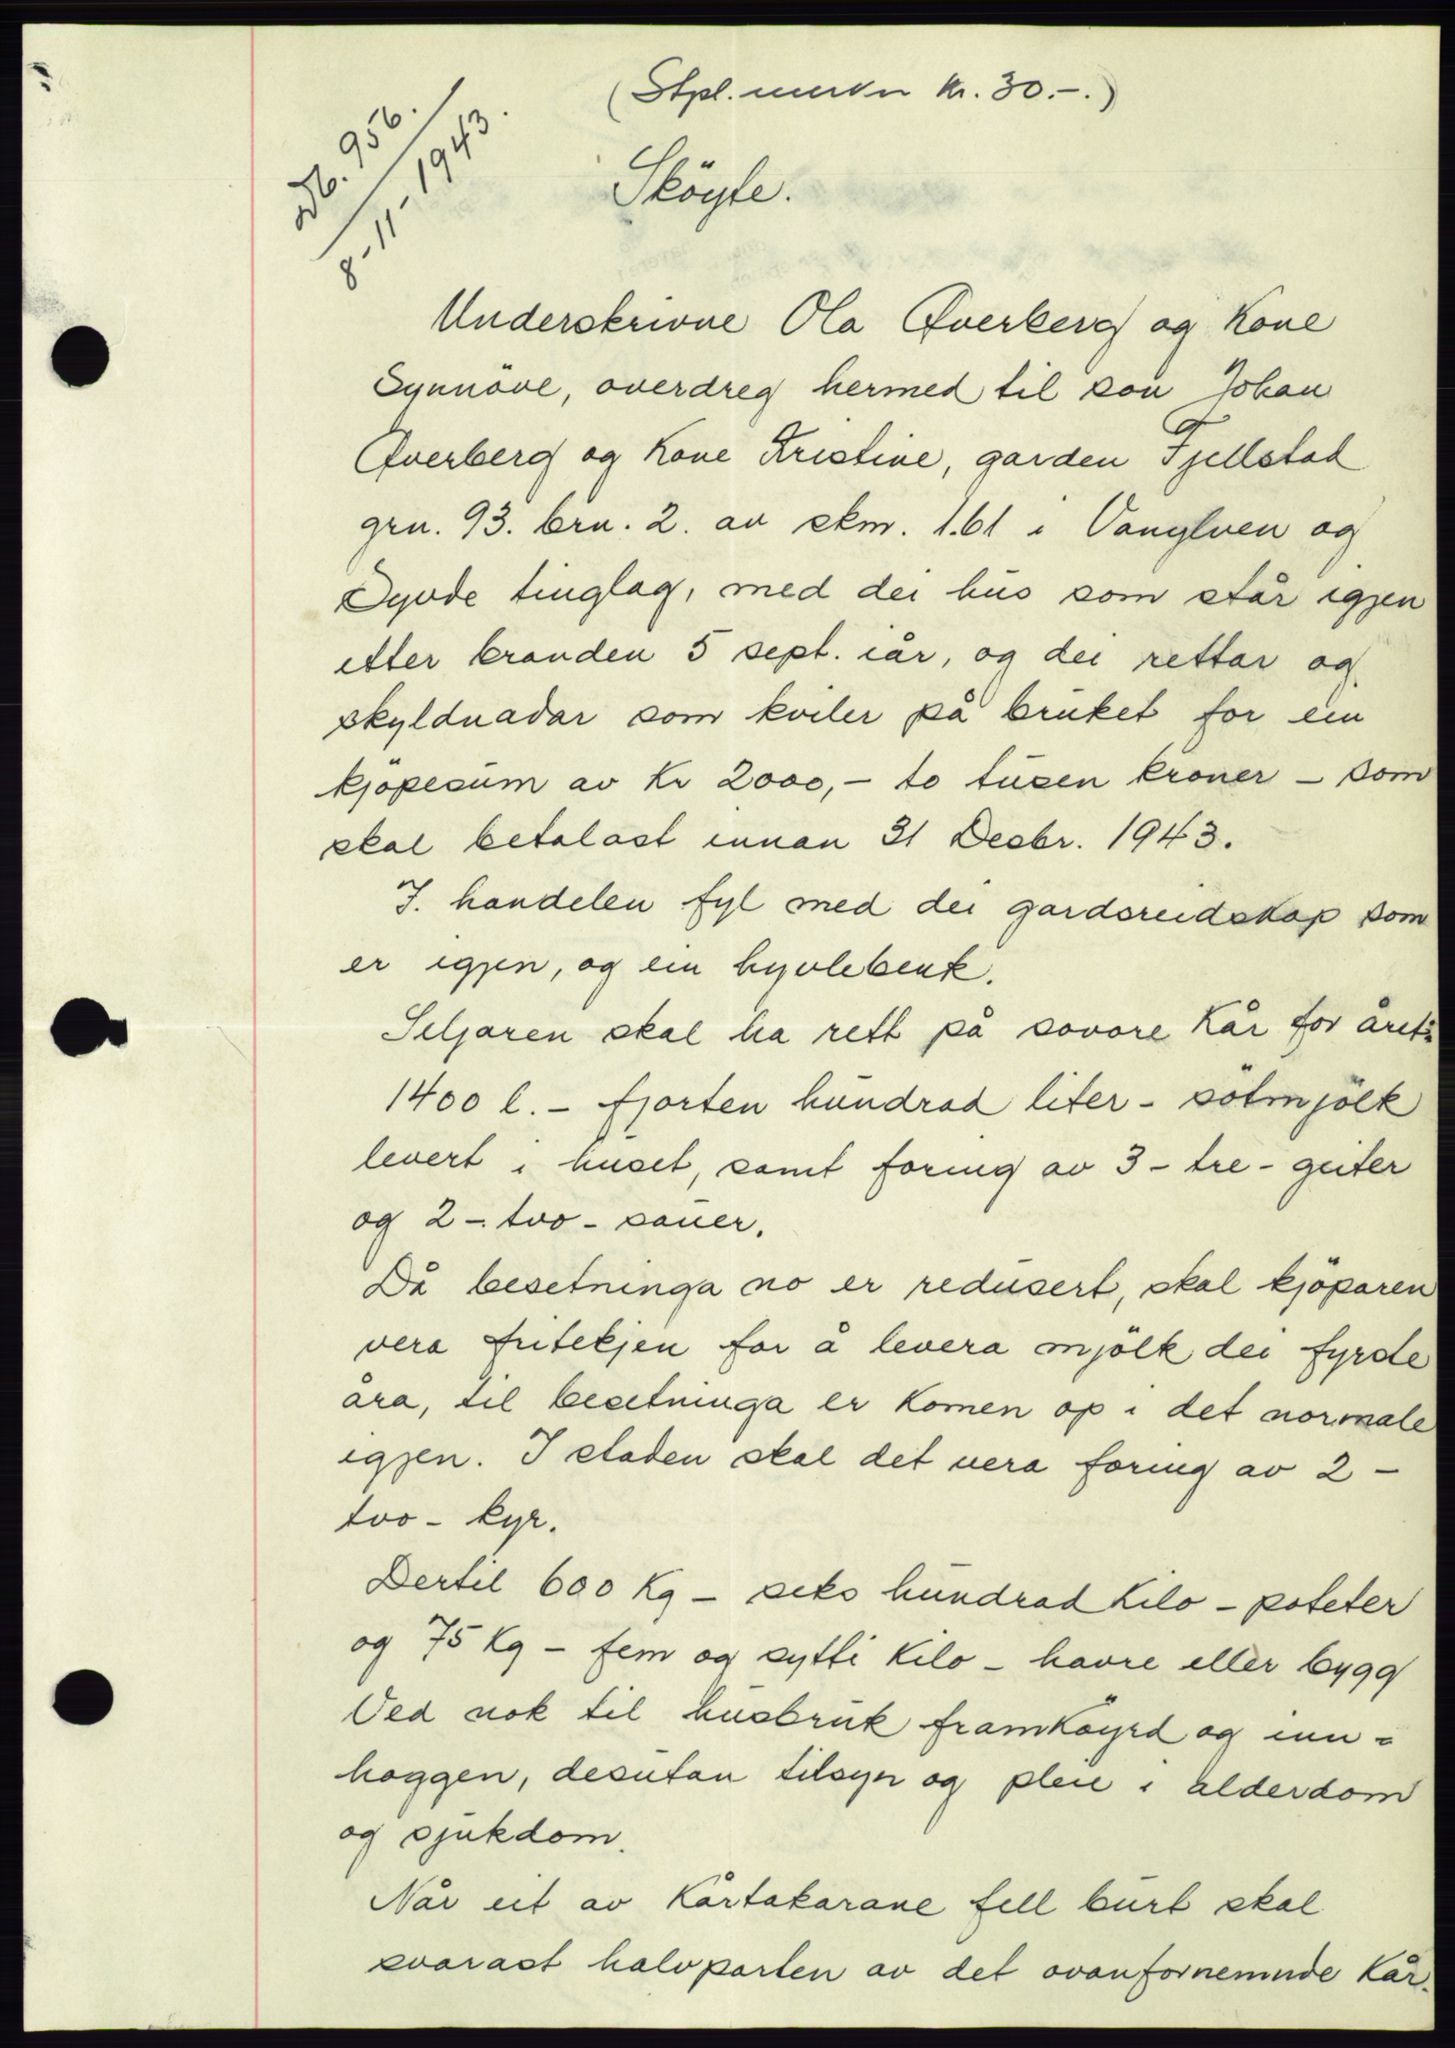 (Stpl. merker kr. 30.-.)
db. 956.
8-11-1943.
Sköyte.
Underskrivne Ola Överberg og kone
Synnöve, overdreg hermed til son Johan
Överberg og kone Kristine, garden Fjellstad
grn. 93. brn. 2. av skm. 1.61 i Vanylven og
Syvde tinglag, med dei hus som står igjen
etter branden 5 sept. iår, og dei rettar og
skyldnadar som kviler på bruket for ein
kjöpesum av Kr 2000,- to tusen kroner - som
skal betalast innan 31 Desbr. 1943.
I. handelen fyl med dei gardsreidskap som
er igjen, og ein hyvlebenk.
Seljaren skal ha rett på sovore kår for året:
1400 l. - fjorten hundrad liter - sötmjölk
levert i huset, samt foring av 3 - tre - geiter
og 2 - tvo - sauer.
Då besetninga no er redusert, skal kjöparen
vera fritekjen for å levera mjölk dei fyrste
åra, til besetninga er komen op i det normale
igjen. I staden skal det vera foring av 2 -
tvo - kyr.
Dertil 600 Kg - seks hundrad kilo - poteter
og 75 Kg - fem og sytti kilo - havre eller bygg
Ved nok til husbruk framköyrd og inn-
hoggen, desutan tilsyn og pleie i alderdom
og sjukdom.
Når eit av kårtakarane fell burt skal
svarast halvparten av det ovanfornemnde kår.